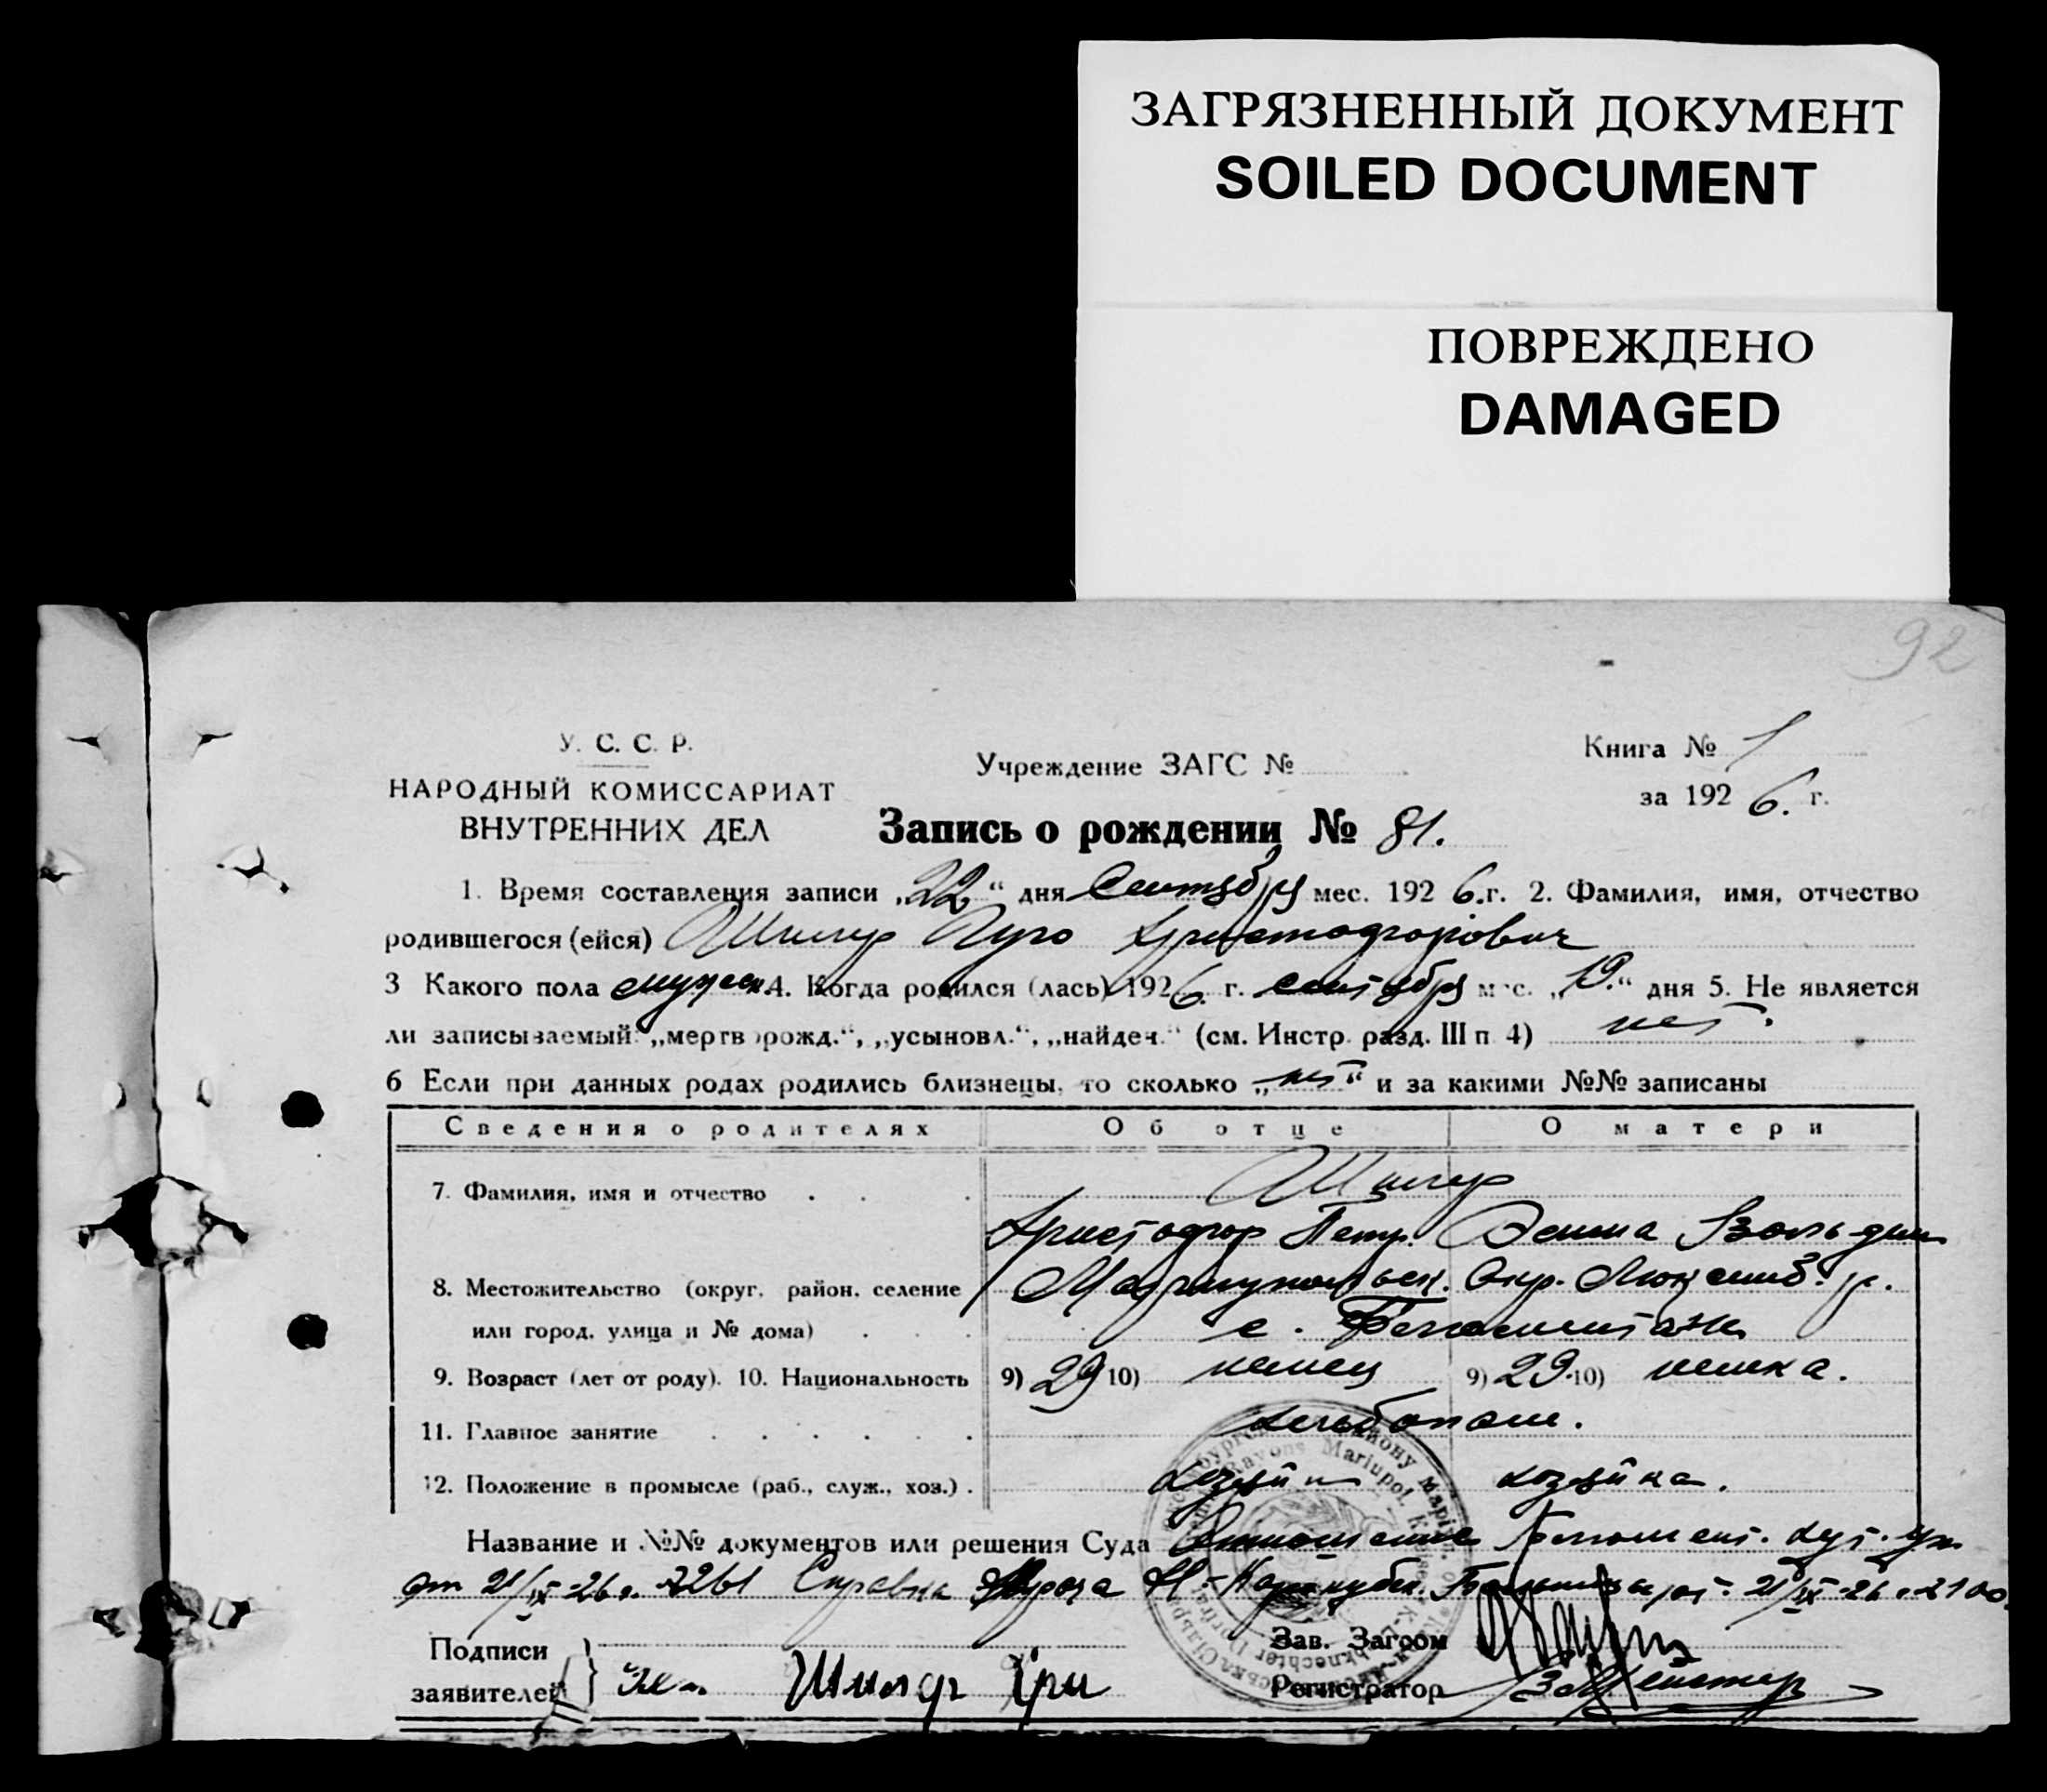 ЗАГРЯЗНЕННЫЙ ДОКУМЕНТ
SOILED DOCUMENT
ПОВРЕЖДЕНО
DAMAGED
92
У. С. С. Р.
НАРОДНЫЙ КОМИССАРИАТ
ВНУТРЕННИХ ДЕЛ
Учреждение ЗАГС №
Книга № 1
за 1926. г.
Запись о рождении № 81.
1. Время составления записи „22“ дня Сентября мес. 1926.г. 2. Фамилия, имя, отчество
родившегося (ейся) Шиллер Гуго Христофорович
3 Какого пола мужск. 4. Когда родился (лась) 1926. г. сентября мес. „19.“ дня 5. Не является
ли записываемый „мертворожд.“, „усыновл.“, „найден.“ (см. Инстр. разд. III п 4) нет.
6 Если при данных родах родились близнецы, то сколько „нет“ и за какими №№ записаны
Сведения о родителях Об отце О матери
7. Фамилия, имя и отчество Шиллер
Христофор Петр. Эмма Вольдем
8. Местожительство (округ, район, селение Мариупольск. Окр. Люксемб. р.
или город, улица и № дома) с.
9. Возраст (лет от роду). 10. Национальность 9) 29 10) немец 9) 29 10) немка.
11. Главное занятие хлебопаш.
12. Положение в промысле (раб., служ., хоз.) хозяин хозяйка.
Название и №№ документов или решения Суда Отношение
от 21/IX-26 г. Справка 21/IX-26
Подписи
заявителей Шиллер Хри
Зав. Загсом
Регистратор
Rayons Mariupol.